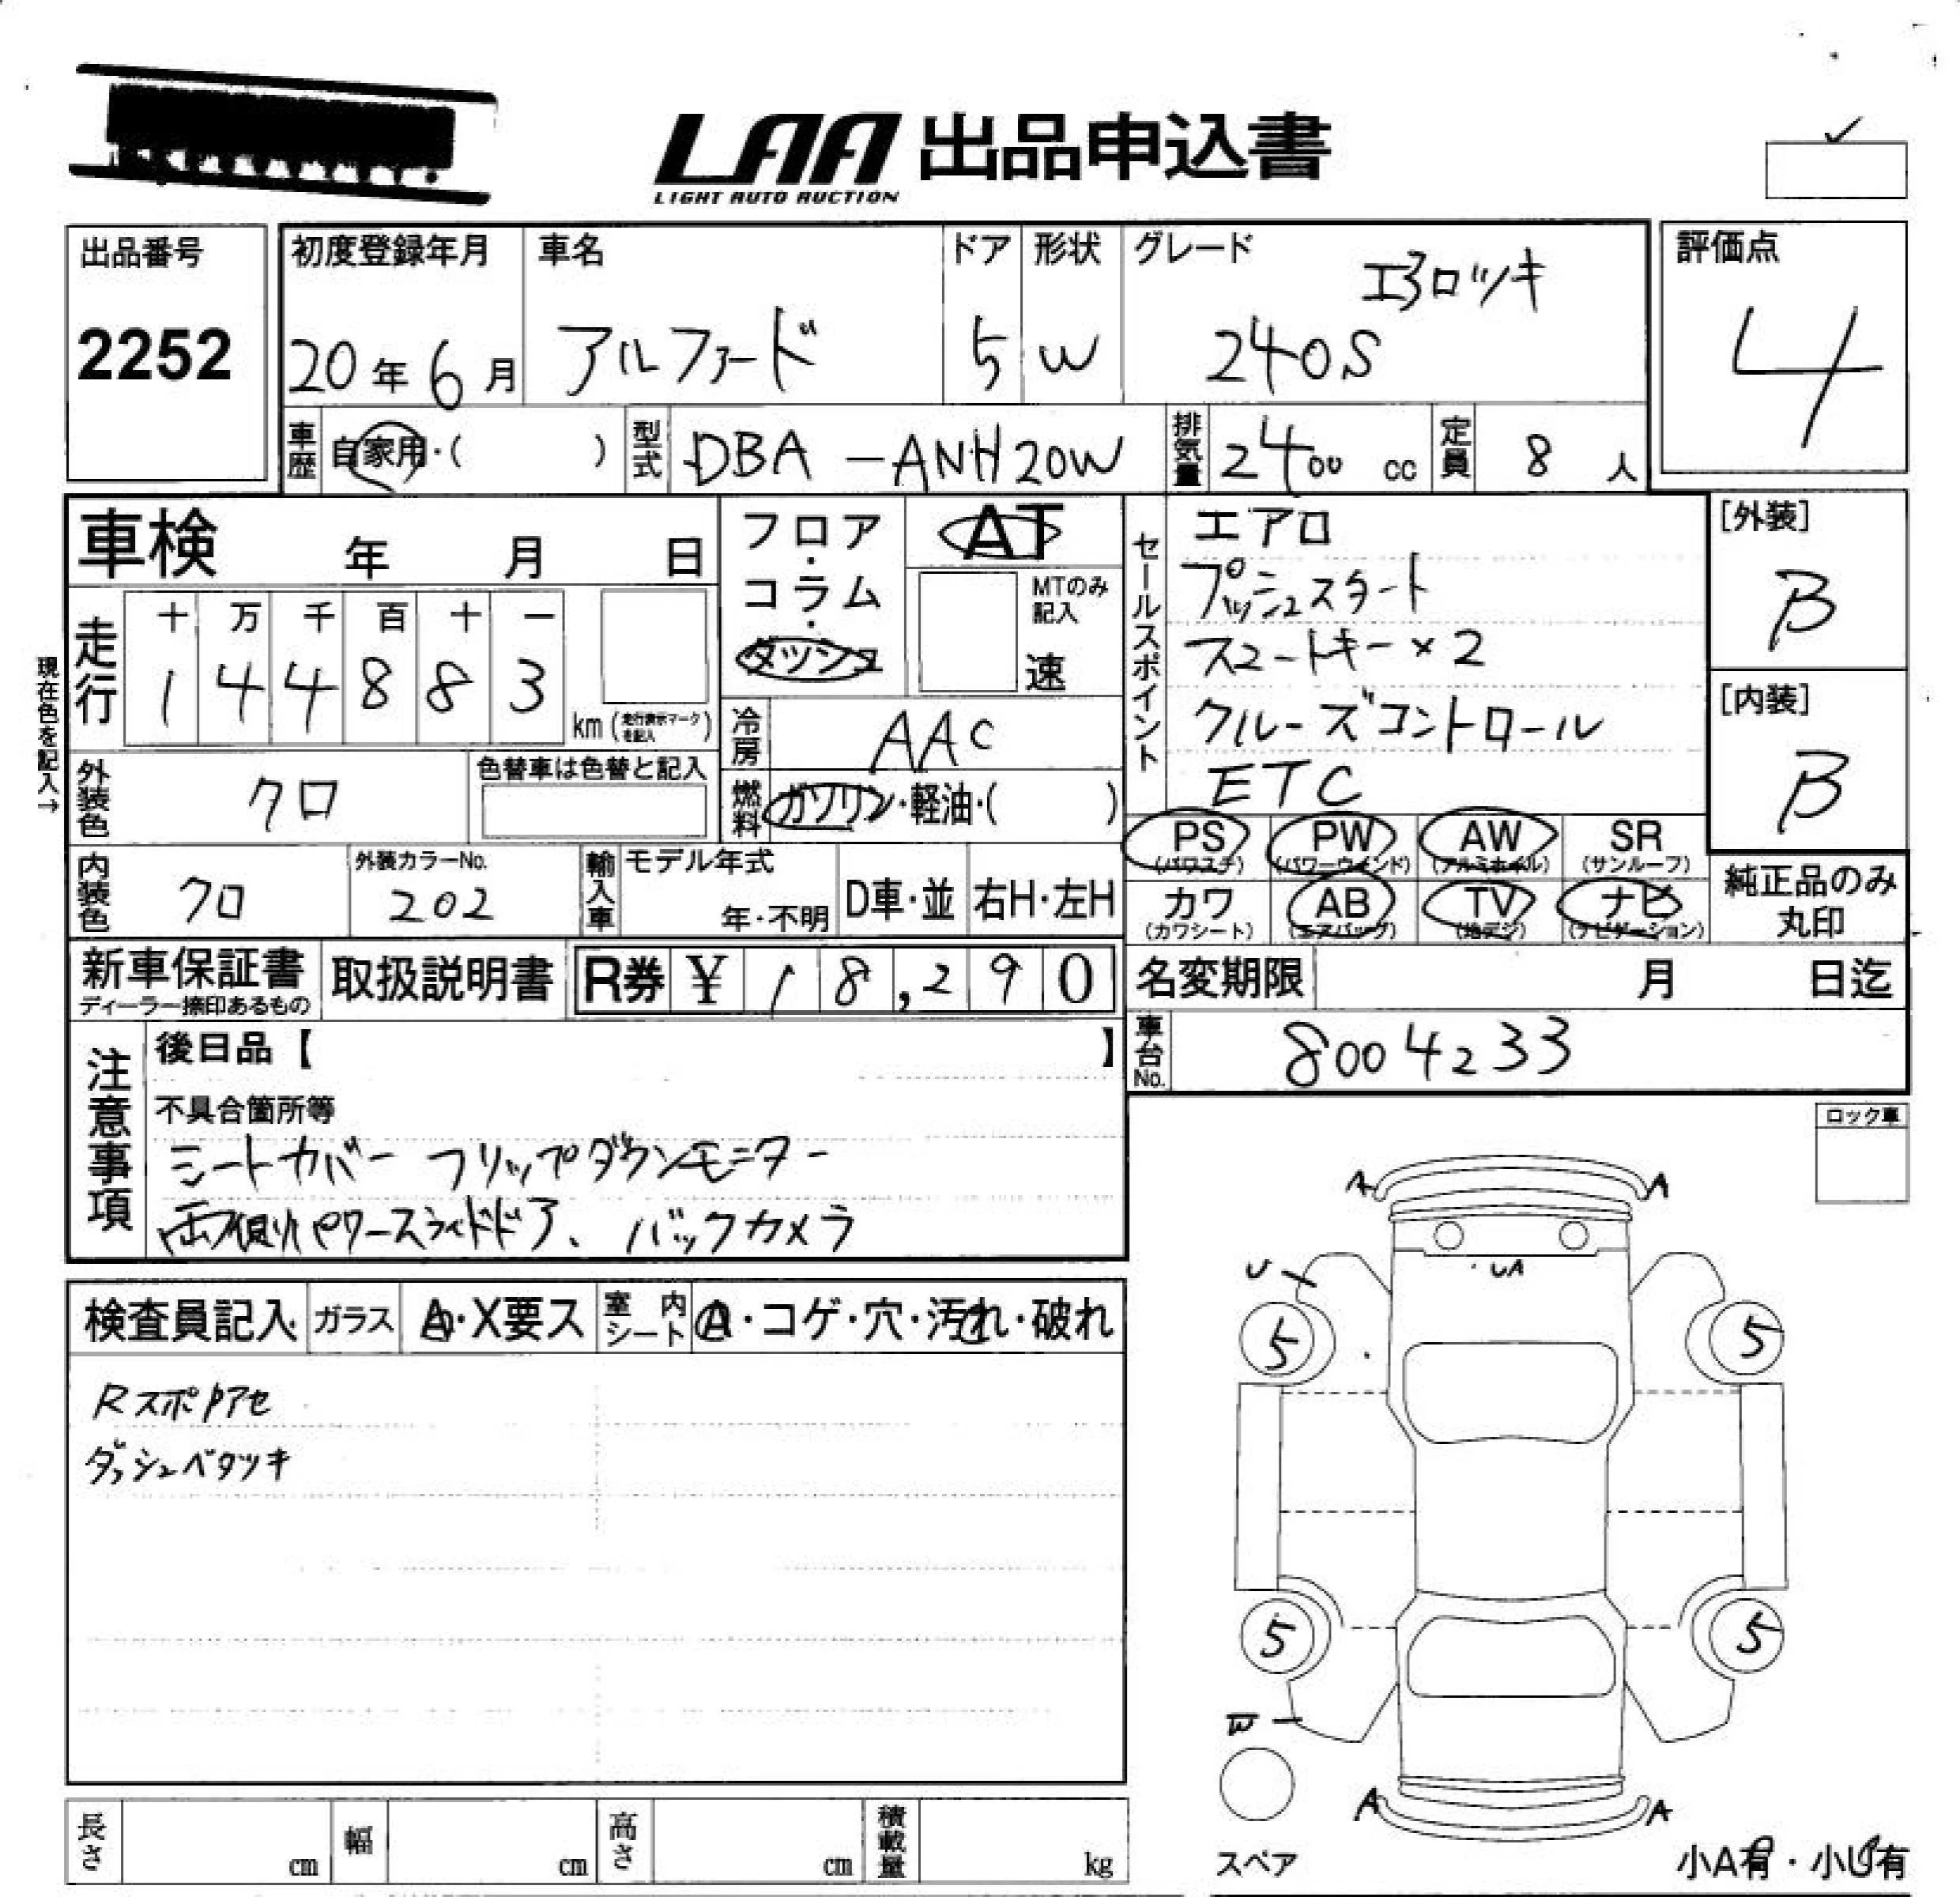 LAA 出品申込書
LIGHT AUTO AUCTION
出品番号
2252
初度登録年月
20年6月
車名
アルファード
ドア
5
形状
W
グレード
エアロツキ
240S
評価点
4
車歴
自家用・( )
型式
DBA-ANH20W
排気量
2400 cc
定員
8 人
車検 年 月 日
フロア・コラム・ダッシュ
AT
MTのみ記入
速
セールスポイント
エアロ
プッシュスタート
スマートキー×2
クルーズコントロール
ETC
[外装]
B
[内装]
B
現在色を記入→
走行
十 万 千 百 十 一
1 4 4 8 8 3
km (走行表示マークを記入)
冷房
AAC
外装色
クロ
色替車は色替と記入
燃料
ガソリン・軽油・( )
PS (パワステ)
PW (パワーウインド)
AW (アルミホイル)
SR (サンルーフ)
カワ (カワシート)
AB (エアバッグ)
TV (地デジ)
ナビ (ナビゲーション)
純正品のみ
丸印
内装色
クロ
外装カラーNo.
202
輸入車
モデル年式
年・不明
D車・並
右H・左H
新車保証書
ディーラー捺印あるもの
取扱説明書
R券 ¥18,290
名変期限 月 日迄
車台No.
8004233
注意事項
後日品【 】
不具合箇所等
シートカバー フリップダウンモニター
両側パワースライドドア、バックカメラ
ロック車
検査員記入
ガラス
A・X要ス
室内シート
A・コゲ・穴・汚れ・破れ
ダッシュベタツキ
A A
U
UA
5 5
5 5
W
A A
スペア
小A有・小U有
長さ cm
幅 cm
高さ cm
積載量 kg